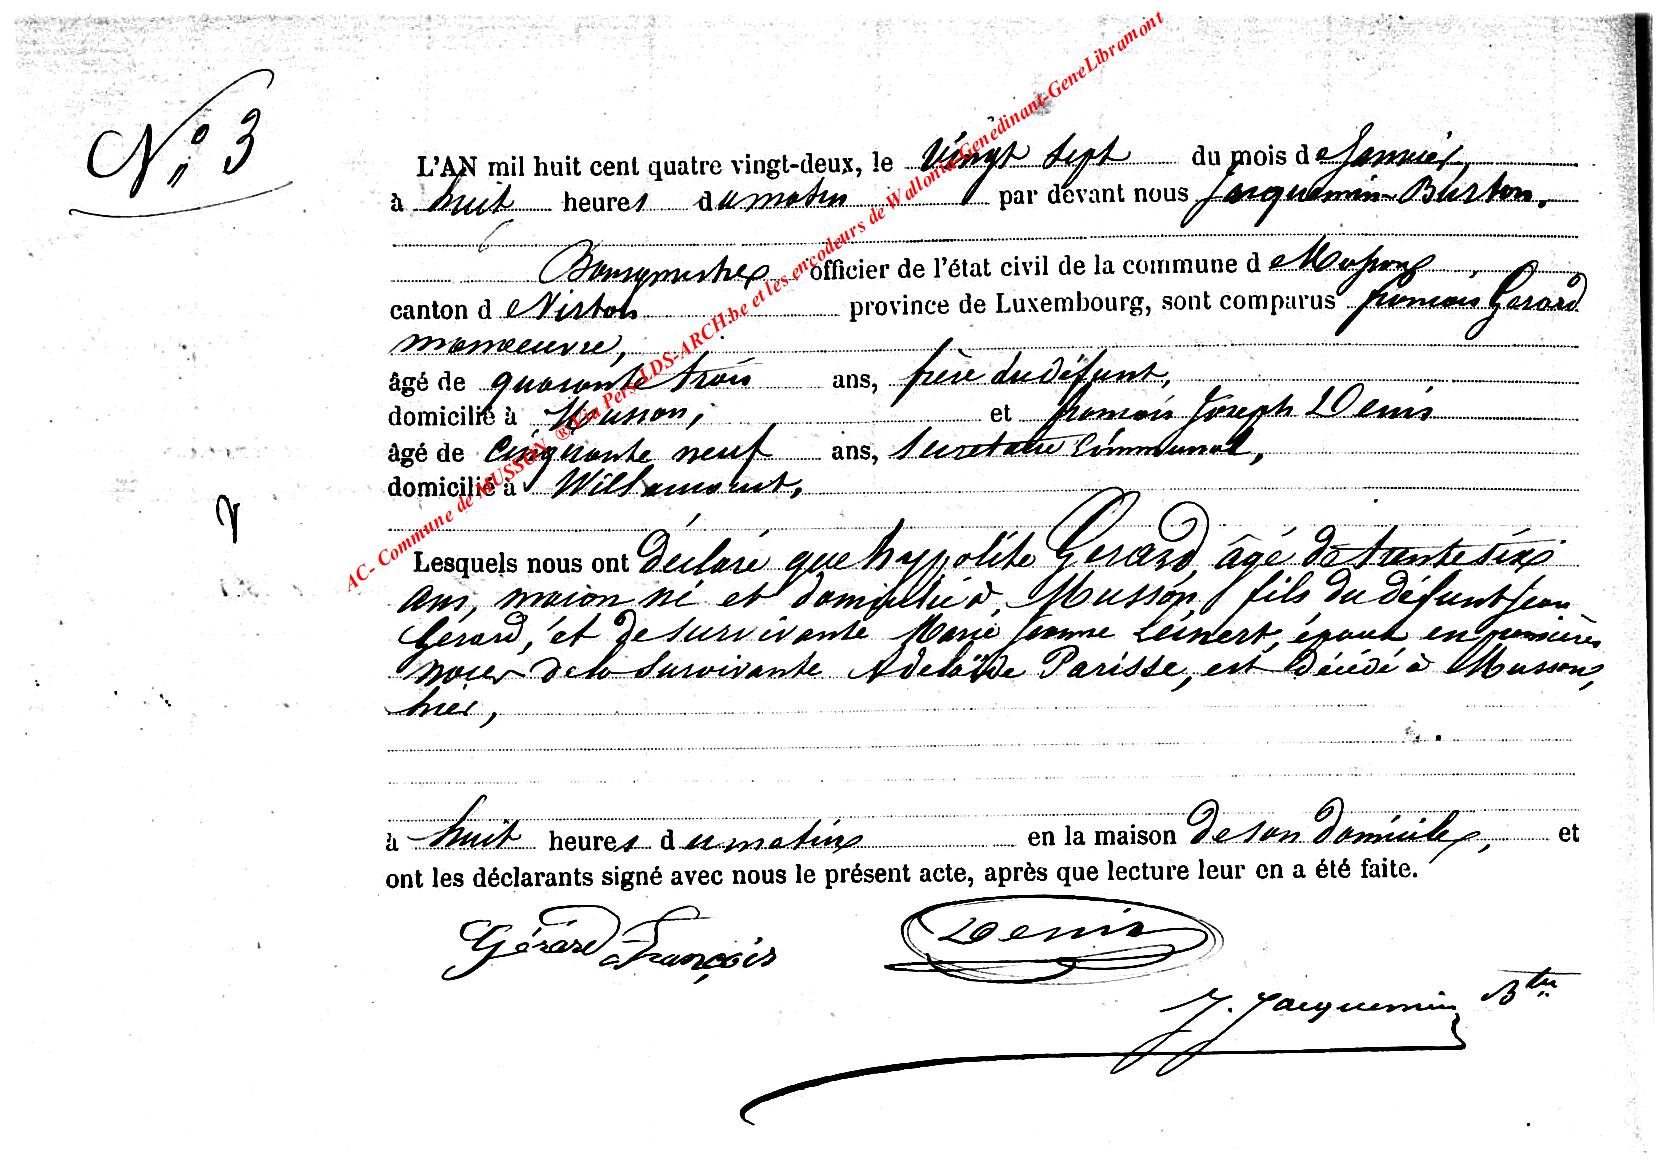 N° 3
L'AN mil huit cent quatre vingt-deux, le Vingt Sept du mois de Janvier,
à huit heures du matin par devant nous Jacquemin Burton.
Bourgmestre officier de l'état civil de la commune de Musson
canton de Virton province de Luxembourg, sont comparus françois Gerard
manoeuvre,
âgé de quarante trois ans, frère du défunt,
domicilié à Musson, et françois Joseph Denis
âgé de Cinquante neuf ans, Secretaire Communal,
domicilié à Willancourt,
Lesquels nous ont déclaré que hyppolite Gerard, âgé de trente six
ans, maçon né et domicilié à Musson, fils du défunt Jean
Gérard, et de survivante Marie Jeanne Leinert, époux en premières
noces de la survivante Adelaïde Parisse, est décédé à Musson,
hier,
à huit heures du matin en la maison de son domicile, et
ont les déclarants signé avec nous le présent acte, après que lecture leur en a été faite.
Gérard François
Denis
J. Jacquemin Btn
AC- Commune de MUSSON ® Lia Pers-LDS-ARCH.be et les encodeurs de Wallonie-Genedinant-GeneLibramont